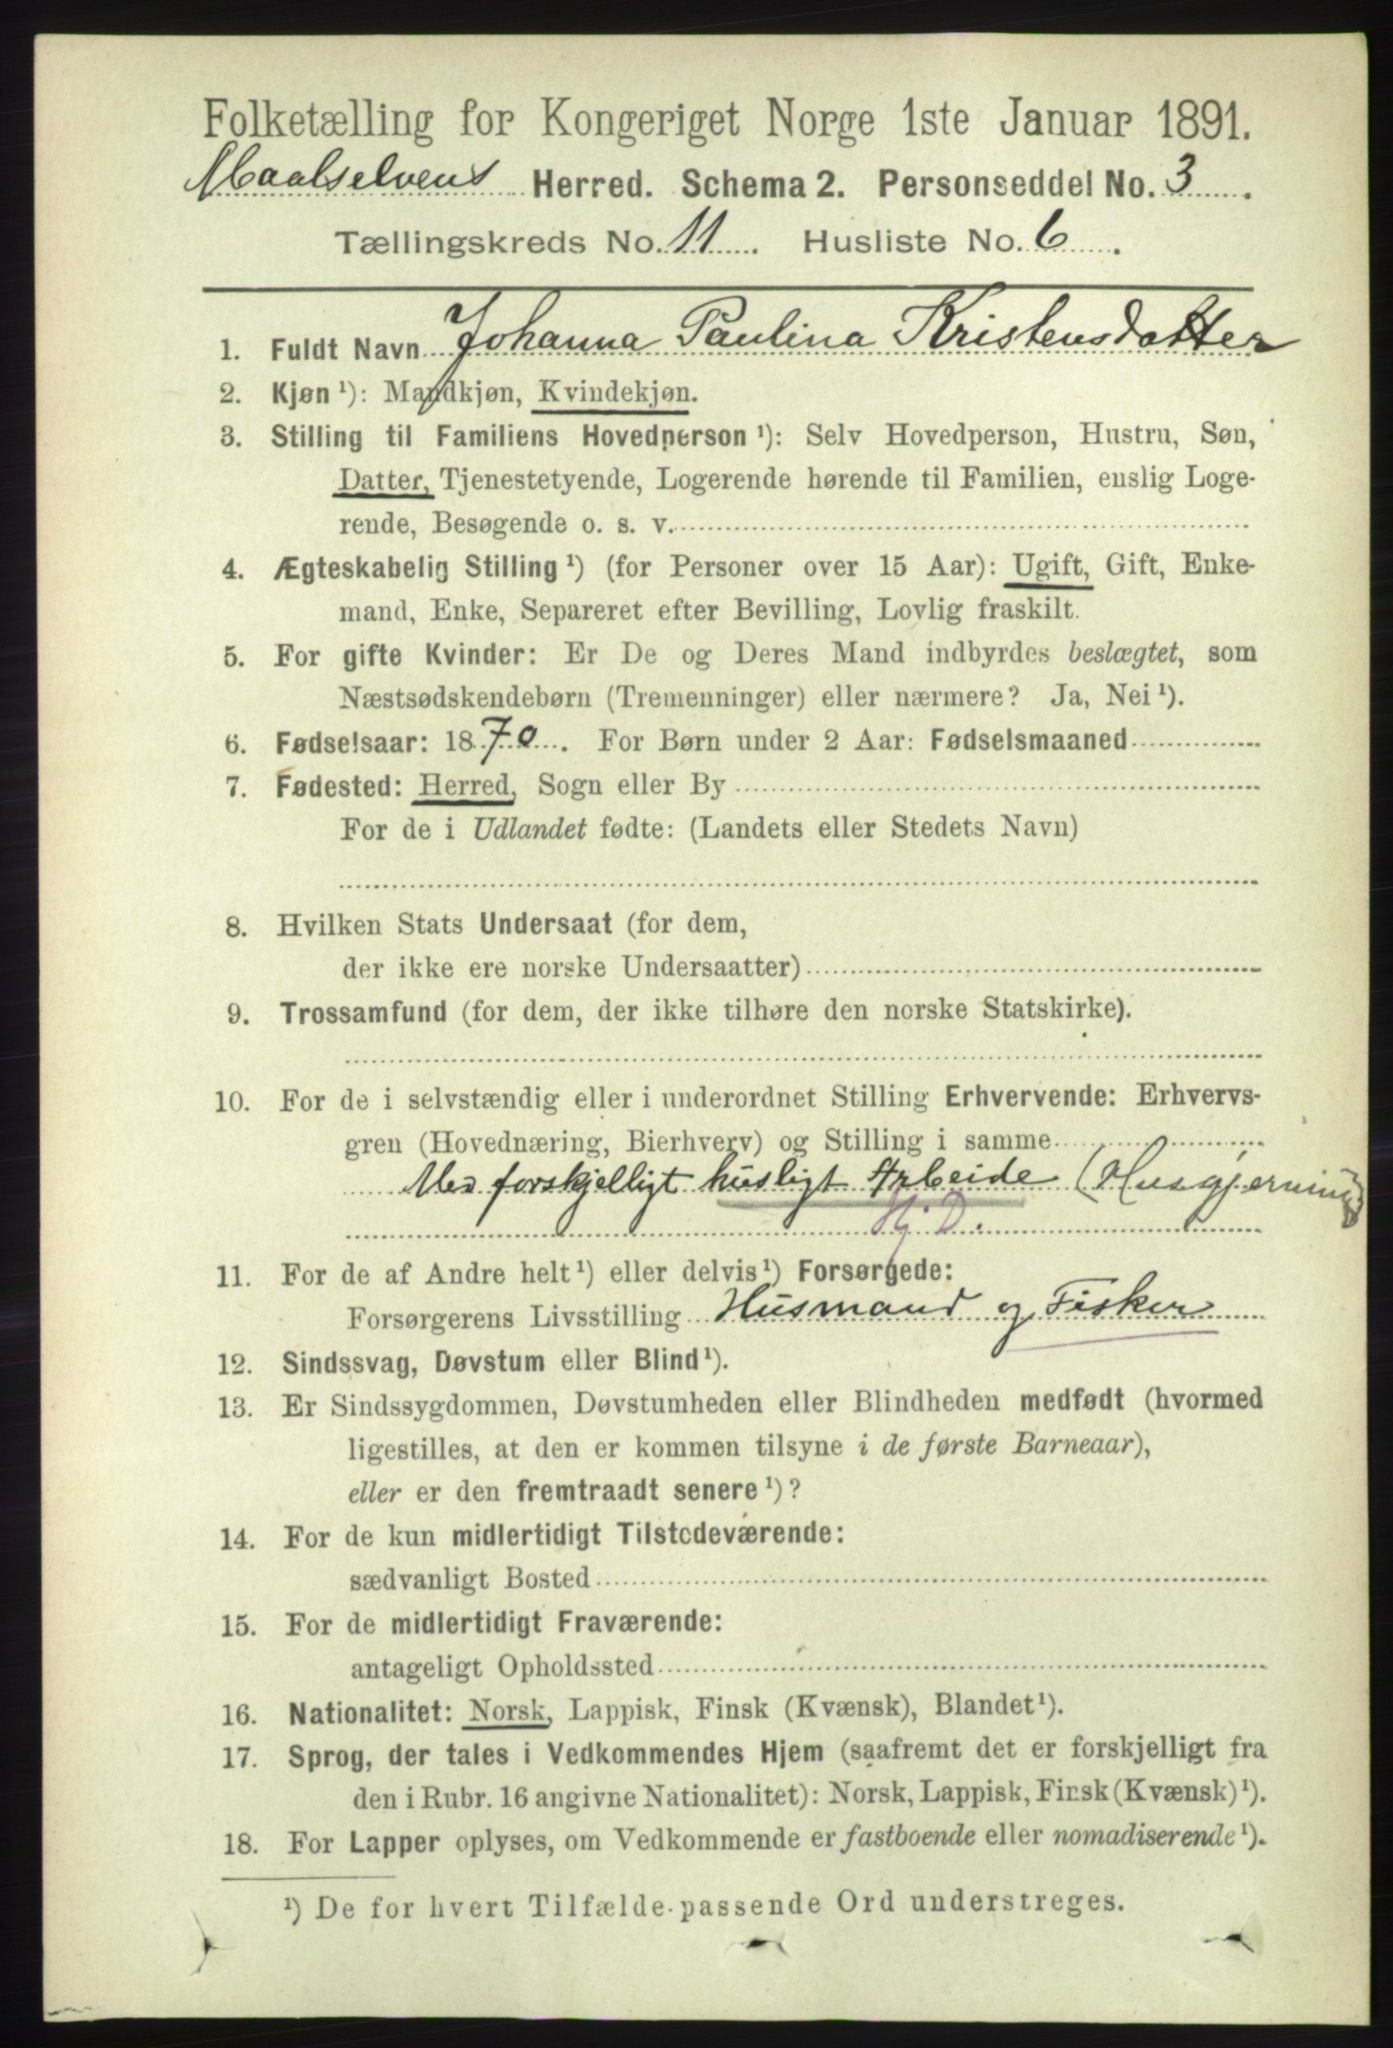 Folketælling for Kongeriget Norge 1ste Januar 1891.
Maalselvens Herred. Schema 2. Personseddel No. 3.
Tællingskreds No. 11. Husliste No. 6.
1. Fuldt Navn Johanna Paulina Kristensdatter
2. Kjøn ¹): Mandkjøn, Kvindekjøn.
3. Stilling til Familiens Hovedperson ¹): Selv Hovedperson, Hustru, Søn,
Datter, Tjenestetyende, Logerende hørende til Familien, enslig Loge-
rende, Besøgende o. s. v.
4. Ægteskabelig Stilling ¹) (for Personer over 15 Aar): Ugift, Gift, Enke-
mand, Enke, Separeret efter Bevilling, Lovlig fraskilt.
5. For gifte Kvinder: Er De og Deres Mand indbyrdes beslægtet, som
Næstsødskendebørn (Tremenninger) eller nærmere? Ja, Nei ¹).
6. Fødselsaar: 1870. For Børn under 2 Aar: Fødselsmaaned
7. Fødested: Herred, Sogn eller By
For de i Udlandet fødte: (Landets eller Stedets Navn)
8. Hvilken Stats Undersaat (for dem,
der ikke ere norske Undersaatter)
9. Trossamfund (for dem, der ikke tilhøre den norske Statskirke).
10. For de i selvstændig eller i underordnet Stilling Erhvervende: Erhvervs-
gren (Hovednæring, Bierhverv) og Stilling i samme
Med forskjelligt husligt Arbeide (Husgjerning)
Hj. D.
11. For de af Andre helt ¹) eller delvis ¹) Forsørgede:
Forsørgerens Livsstilling Husmand og Fisker
12. Sindssvag, Døvstum eller Blind ¹).
13. Er Sindssygdommen, Døvstumheden eller Blindheden medfødt (hvormed
ligestilles, at den er kommen tilsyne i de første Barneaar),
eller er den fremtraadt senere ¹)?
14. For de kun midlertidigt Tilstedeværende:
sædvanligt Bosted
15. For de midlertidigt Fraværende:
antageligt Opholdssted
16. Nationalitet: Norsk, Lappisk, Finsk (Kvænsk), Blandet ¹).
17. Sprog, der tales i Vedkommendes Hjem (saafremt det er forskjelligt fra
den i Rubr. 16 angivne Nationalitet): Norsk, Lappisk, Finsk (Kvænsk) ¹).
18. For Lapper oplyses, om Vedkommende er fastboende eller nomadiserende ¹).
¹) De for hvert Tilfælde passende Ord understreges.